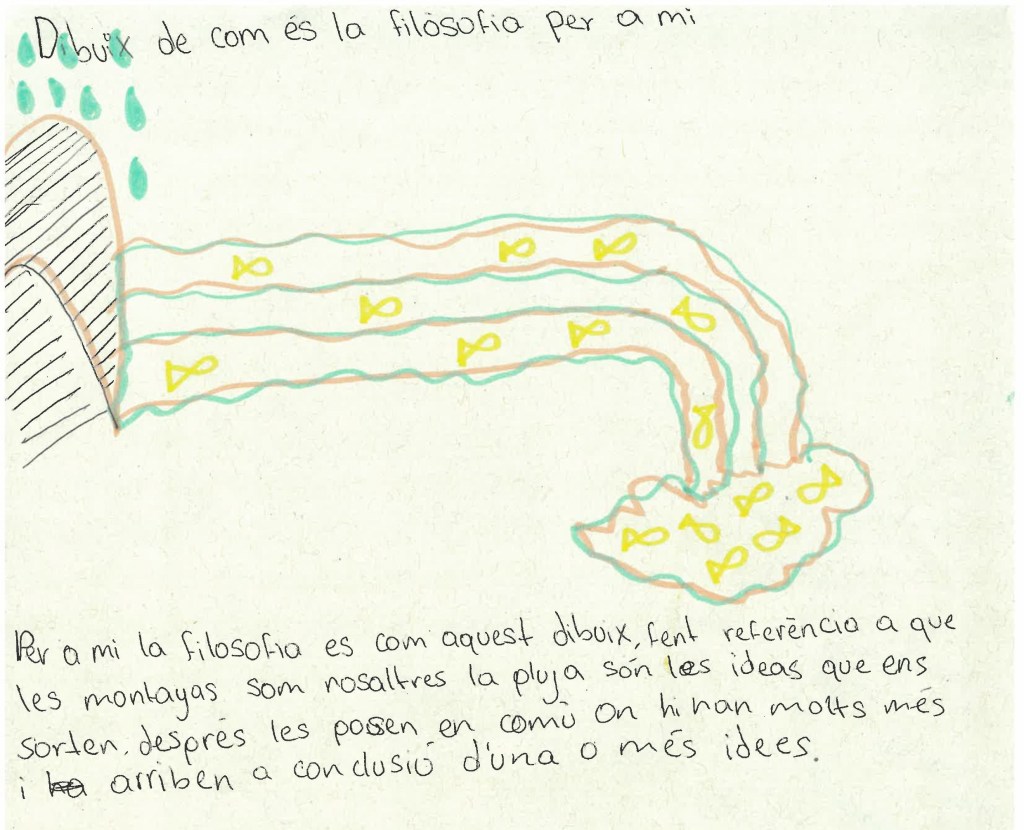 Dibuix de com és la filosofia per a mi
Per a mi la filosofia es com aquest dibuix, fent referència a que
les montayas som nosaltres la pluja són les ideas que ens
sorten. després les posen en comù on hi nan molts més
i arriben a conclusió d'una o més idees.